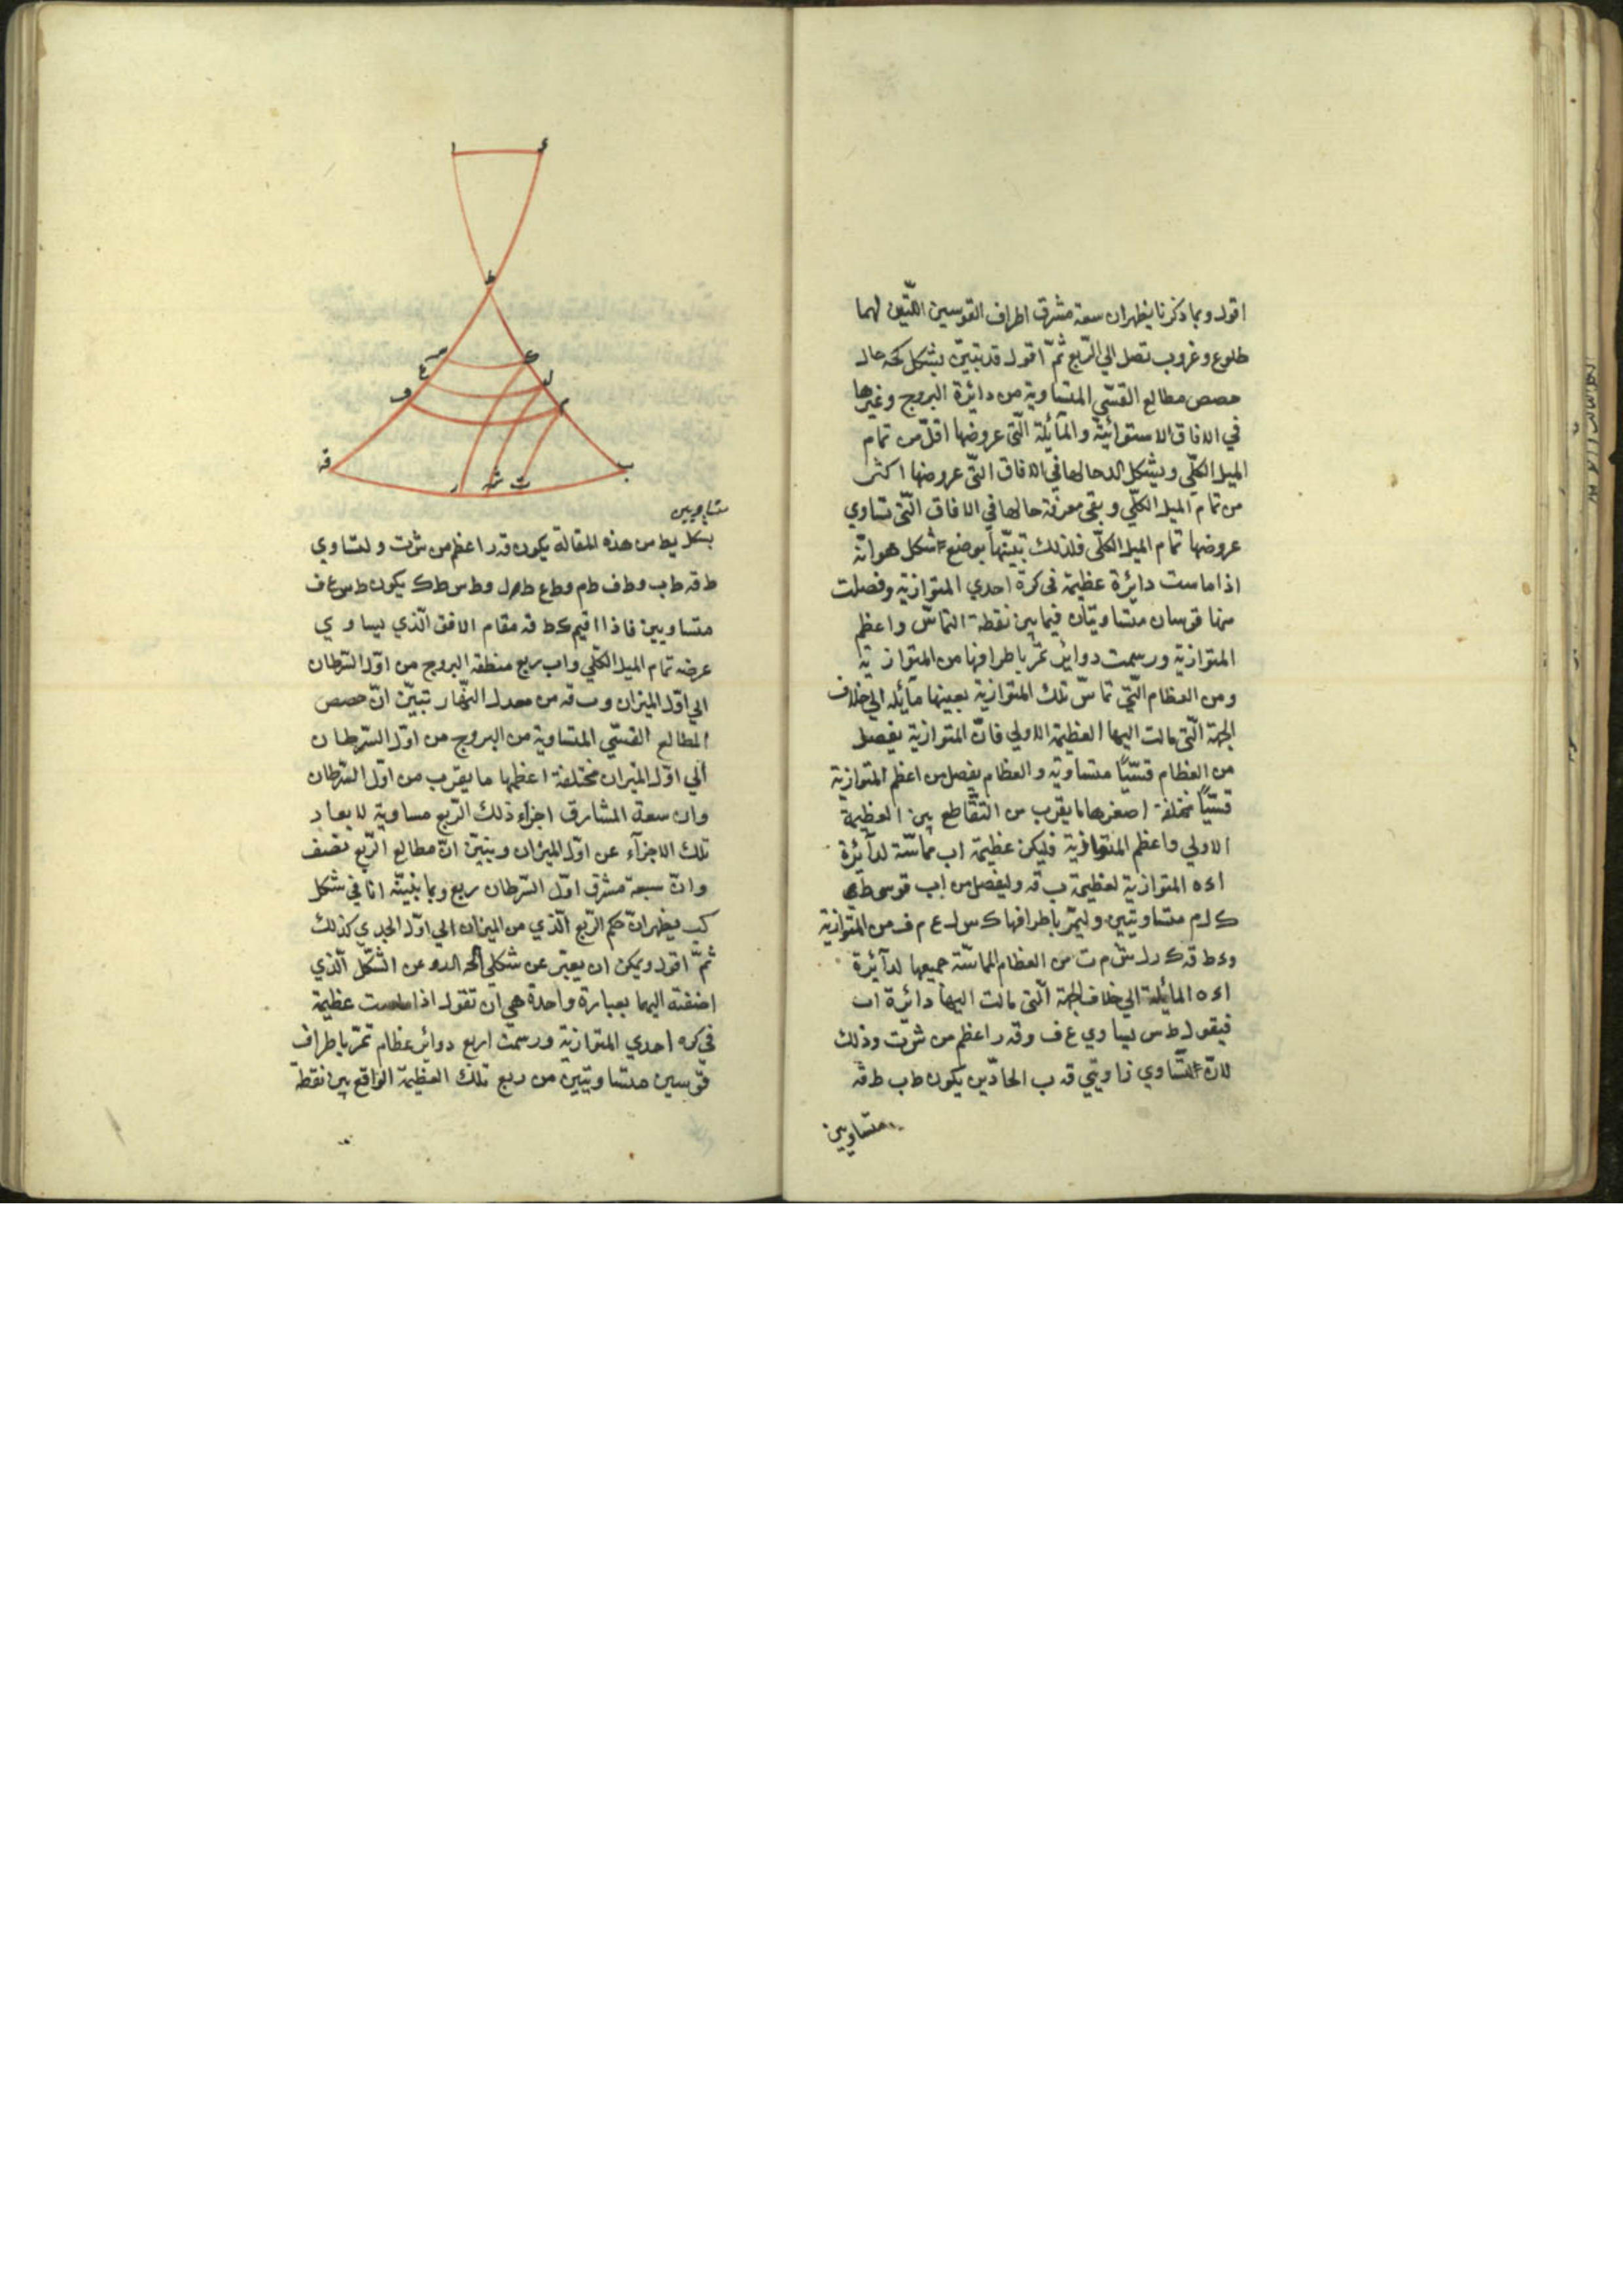 اقول وبما ذكرنا يظهر ان سعة مشرق اطراف القوسين اللتين لهما
طلوع وغروب تصل الي الربع ثمّ اقول قد تبيّن بشكل كحه حال
حصص مطالع القسّي المتساوية من دائرة البروج وغيرها
في الافاق الاستوائيّة والمائلة الّتي عروضها اقلّ من تمام
الميل الكلّي وبشكل الد حالها في الافاق الّتي عروضها اكثر
من تمام الميل الكلّي وبقي معرفة حالها في الافاق الّتي تساوي
عروضها تمام الميل الكلّي فلذلك تبيّنها بوضع شكل هو انّه
اذا ماست دائرة عظيمة في كرة احدي المتوازية وفصلت
منها قوسان متساويتان فيما بين نقطة التماسّ واعظم
المتوازية ورسمت دوائر تمرّ باطرافها من المتوازية
ومن العظام الّتي تماسّ تلك المتوازية بعينها مائلة الي خلاف
الجهة الّتي مالت اليها العظيمة الاولي فانّ المتوازية يفصل
من العظام قسيّاً متساوية والعظام يفصل من اعظم المتوازية
قسيّاً مختلفة اصغرها ما يقرب من التقاطع بين العظيمة
الاولي واعظم المتوازية فليكن عظيمة اب مماسّة لدائرة
اءه المتوازية لعظيمة ب قه وليفصل من اب قوسي
ك ل م متساويتين وليمرّ باطرافها ك س ل ع م ف من المتوازية
وء ط قه ك ر ل ش م ت من العظام المماسّة جميعها لدائرة
اءه المائلة الي خلاف الجهة الّتي مالت اليها دائرة اب
فيقول ط س يساوي ع ف وقه ر اعظم من ش ت وذلك
لانّ لتساوي زاويتي قه ب الحادّتين يكون ط ب ط قه
متساويين
ا ء
ط
س ك
ع ل
ف م
قه ر ش ت ب
متساويين
بشكل يط من هذه المقالة يكون قه ر اعظم من ش ت ولتساوي
ط قه ط ب وط ف ط م وط ع ط ل وط س ط ك يكون ط س ع ف
متساويين فاذا اقيم ء ط قه مقام الافق الّذي يساوي
عرضه تمام الميل الكلّي واب ربع منطقة البروج من اوّل السّرطان
الي اوّل الميزان وب قه من معدل النّهار تبيّن انّ حصص
المطالع القسّي المتساوية من البروج من اوّل السّرطان
الي اوّل الميزان مختلفة اعظمها ما يقرب من اوّل السّرطان
وان سعة المشارق اجزاء ذلك الرّبع مساوية لابعاد
تلك الاجزآء عن اوّل الميزان ويتبيّن انّ مطالع الرّبع نصف
وانّ سعة مشرق اوّل السّرطان ربع وبما نبيّنه انا في شكل
كب يظهر انّ حكم الرّبع الّذي من الميزان الي اوّل الجدي كذلك
ثمّ اقول ويمكن ان يعبّر عن شكلي الحه الد وعن الشّكل الّذي
اضفته اليهما بعبارة واحدة هي ان تقول اذا ماست عظيمة
في كره احدي المتوازية ورسمت اربع دوائر عظام تمرّ باطراف
قوّسين متساويتين من ربع تلك العظيمة الواقع بين نقطة